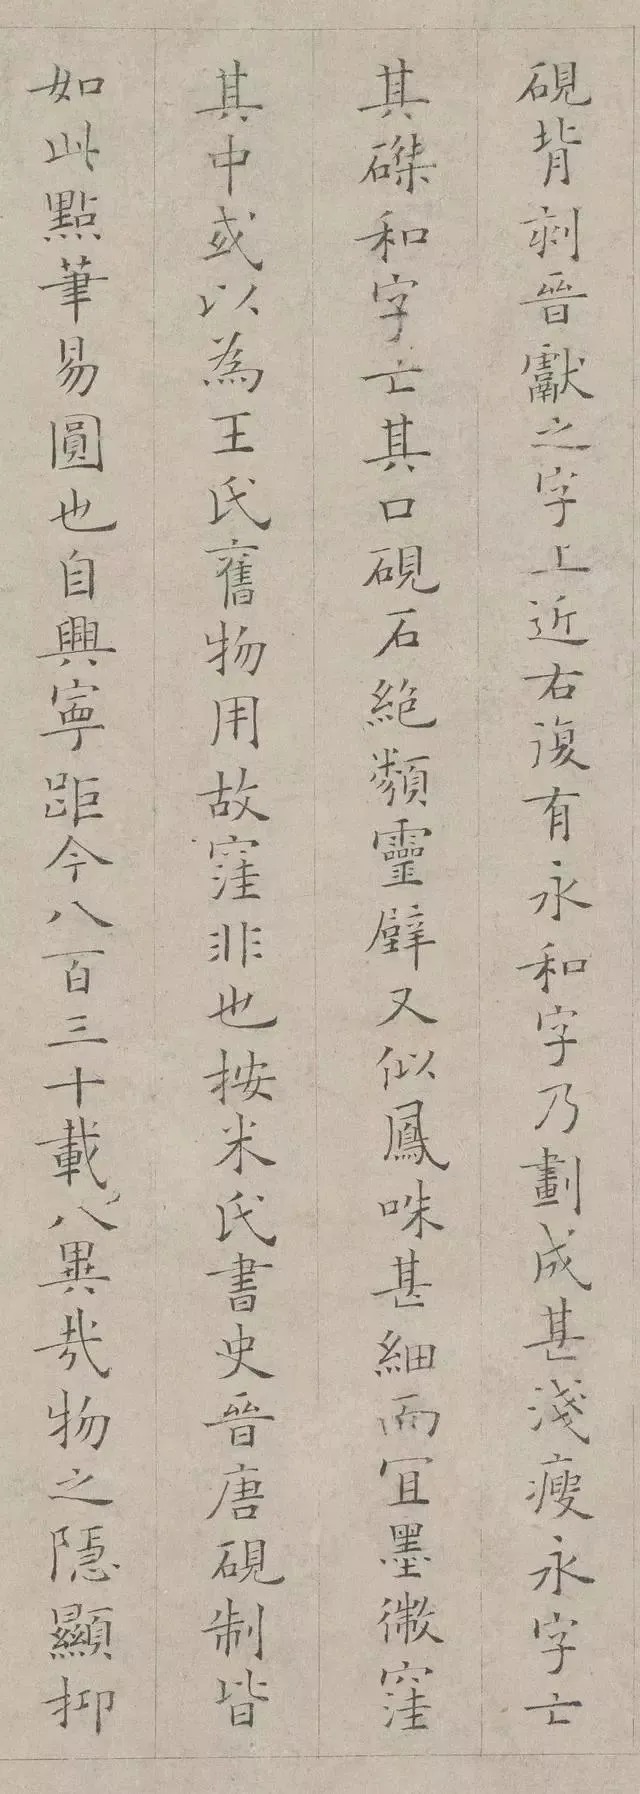 硯背刻晉獻之字上近右復有永和字乃劃成甚淺瘦永字亡
其磔和字亡其口硯石絶類靈璧又似鳳咮甚細而宜墨微窪
其中或以為王氏舊物用故窪非也按米氏書史晉唐硯制皆
如此點筆易圓也自興寧距今八百三十載八異哉物之隱顯抑